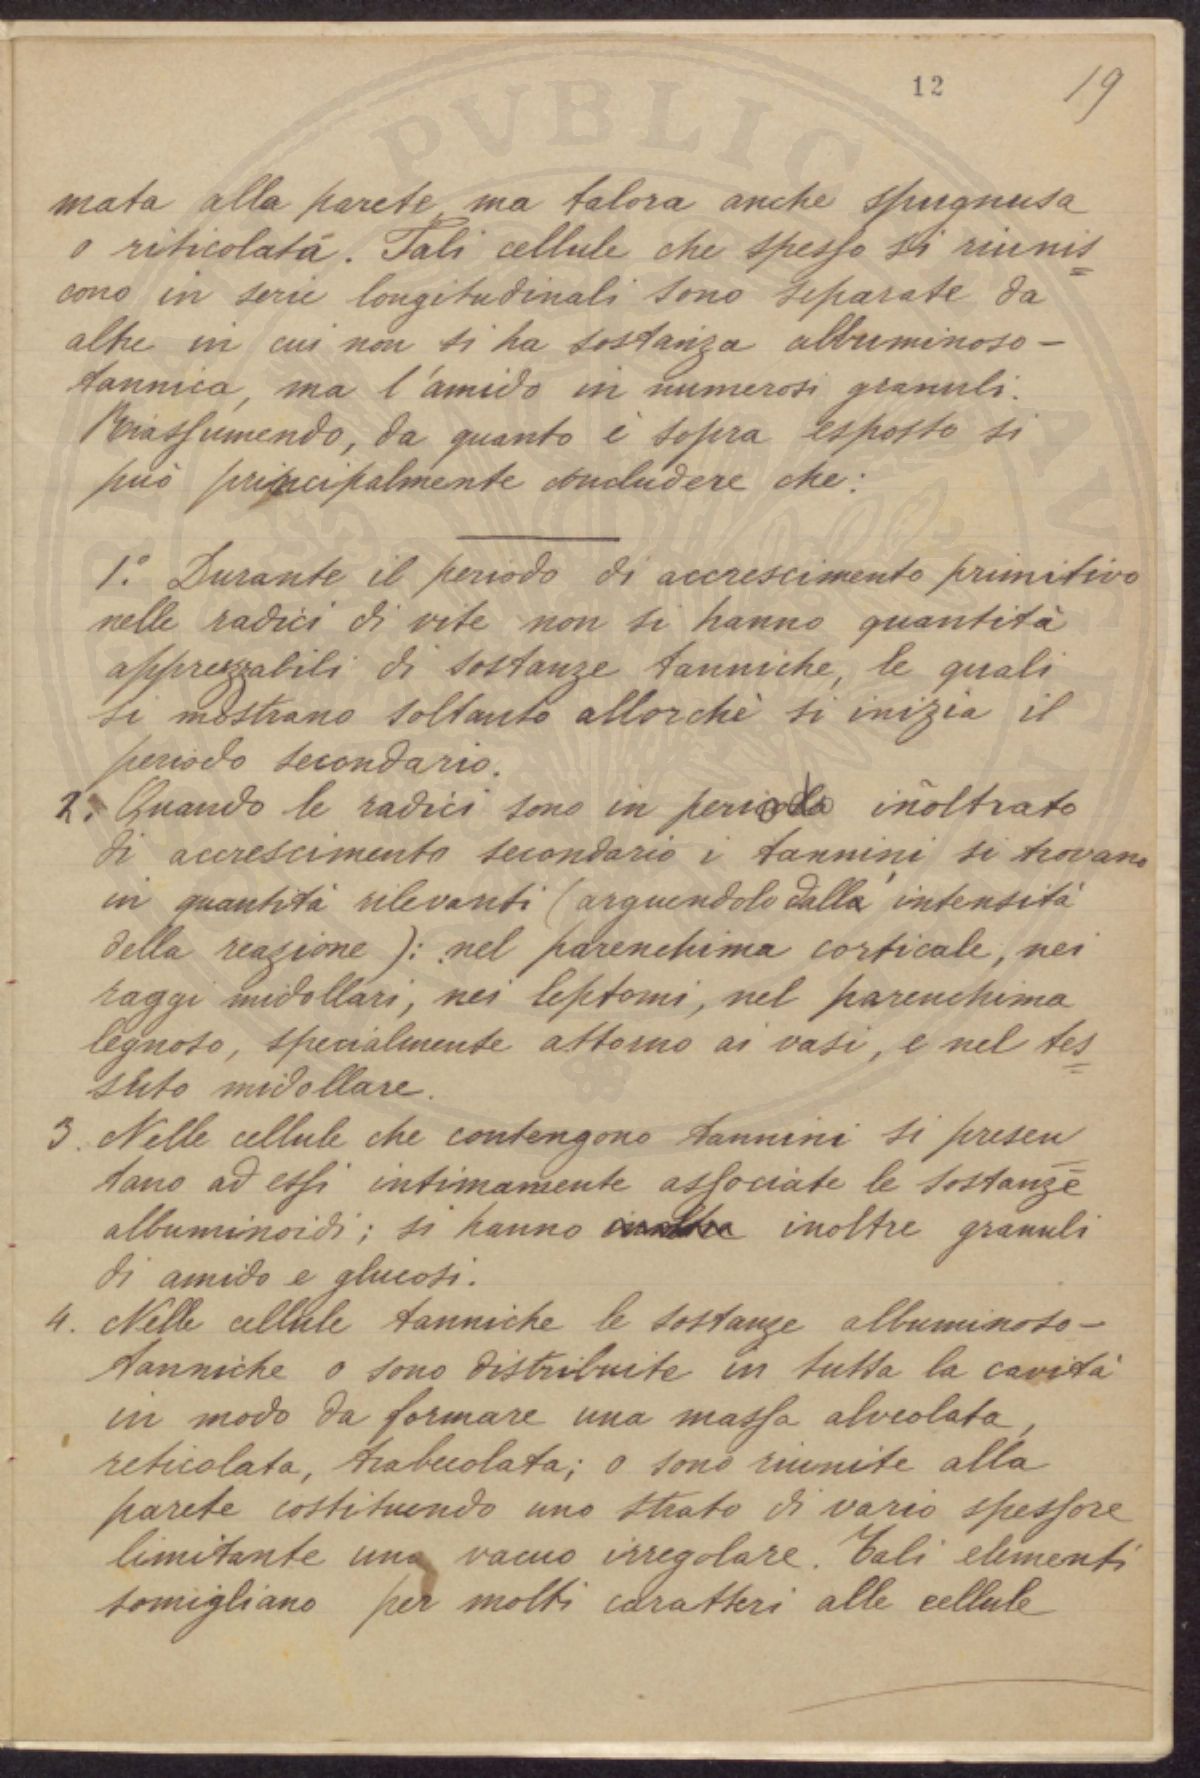 12 19
mata alla parete, ma talora anche spugnusa
o riticolata. Tali cellule che spesso si riunis=
cono in serie longitudinali sono separate da
altre in cui non si ha sostanza albuminoso-
tannica, ma l'amido in numerosi granuli.
Riassumendo, da quanto è sopra esposto si
può principalmente concludere che:
1.° Durante il periodo di accrescimento primitivo
nelle radici di vite non si hanno quantità
apprezzabili di sostanze tanniche, le quali
si mostrano soltanto allorchè si inizia il
periodo secondario.
2. Quando le radici sono in periodo inoltrato
di accrescimento secondario i tannini si trovano
in quantità rilevanti (arguendolo dalla intensità
della reazione): nel parenchima corticale, nei
raggi midollari, nei leptomi, nel parenchima
legnoso, specialmente attorno ai vasi, e nel tes=
suto midollare.
3. Nelle cellule che contengono tannini si presen=
tano ad essi intimamente associate le sostanze
albuminoidi; si hanno inoltre granuli
di amido e glucosi.
4. Nelle cellule tanniche le sostanze albuminoso-
tanniche o sono distribuite in tutta la cavità
in modo da formare una massa alveolata,
reticolata, trabecolata; o sono riunite alla
parete costituendo uno strato di vario spessore
limitante uno vacuo irregolare. Tali elementi
somigliano per molti caratteri alle cellule